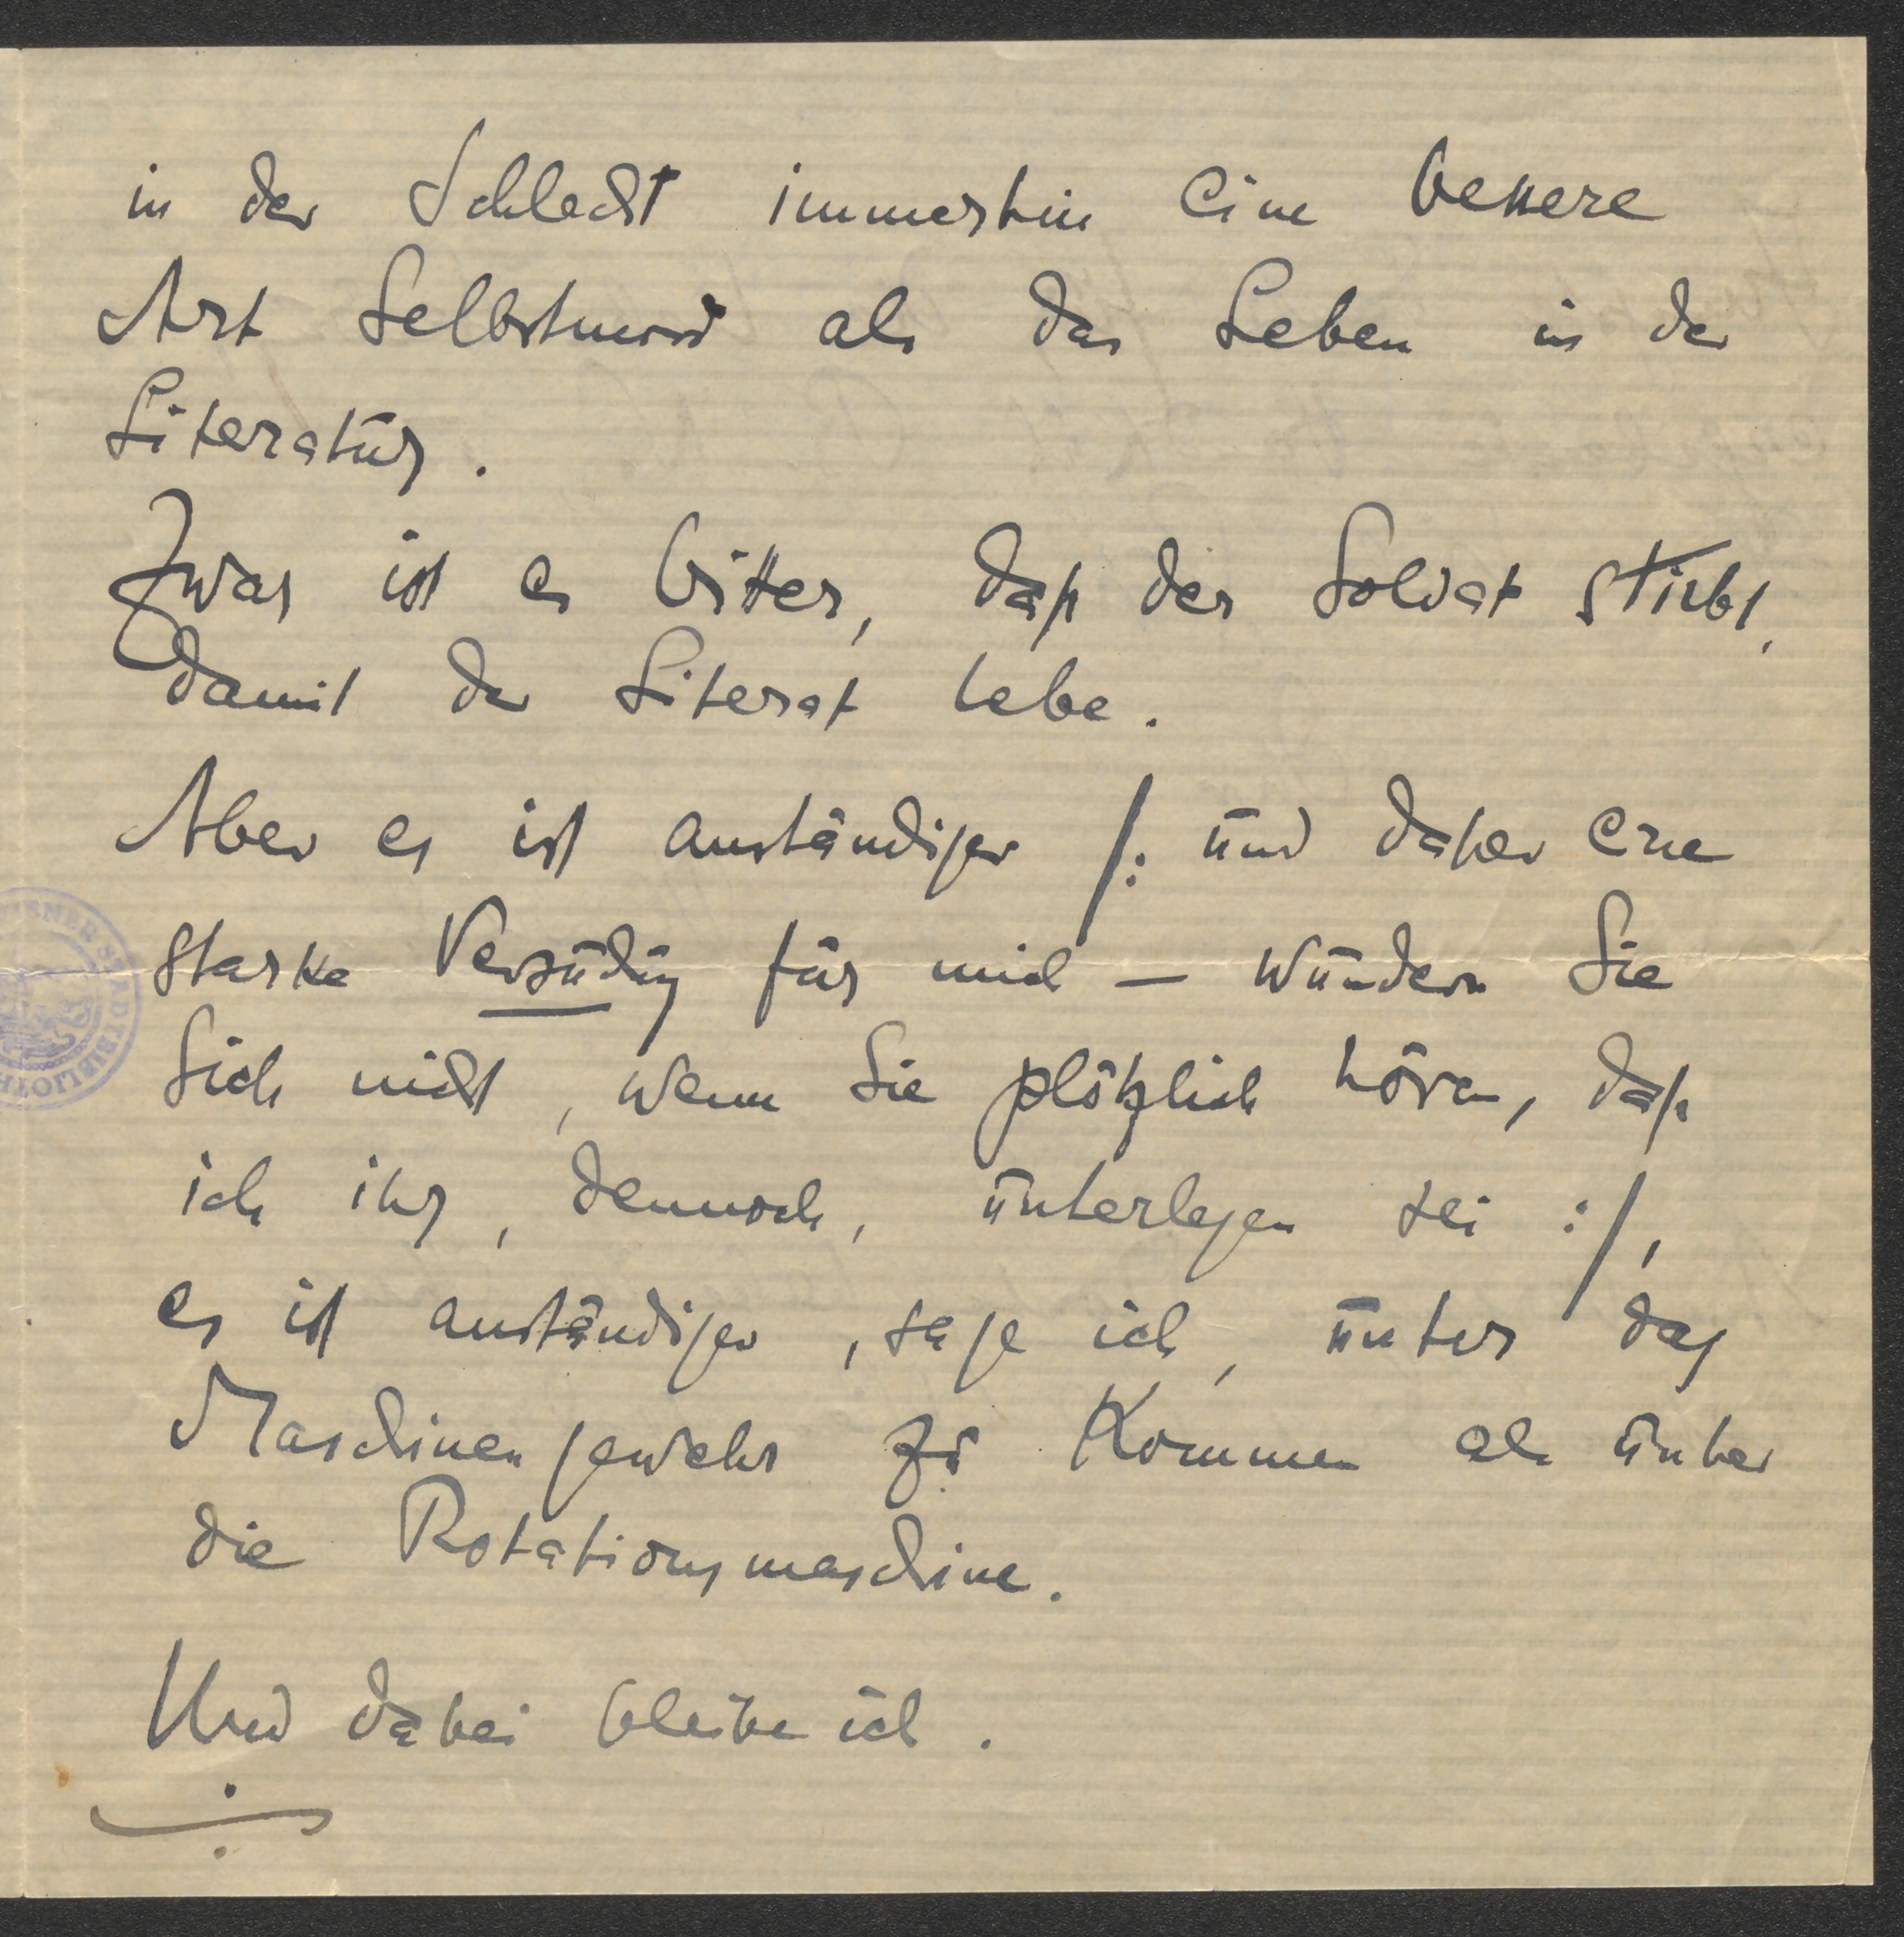 in der Schlacht immerhin eine bessere
Art Selbstmord als das Leben in der
Literatur.
Zwar ist es bitter, daß der Soldat stirbt,
damit der Literat lebe.
Aber es ist anständiger /: und daher eine
starke Versuchung für mich – wundern Sie
Sich nicht, wenn Sie plötzlich hören, daß
ich ihr, dennoch, unterlegen sei :/,
es ist anständiger, sage ich, unter das
Maschinengewehr zu kommen als unter
die Rotationsmaschine.
Und dabei bleibe ich.
WIENER STADTBIBLIOTH